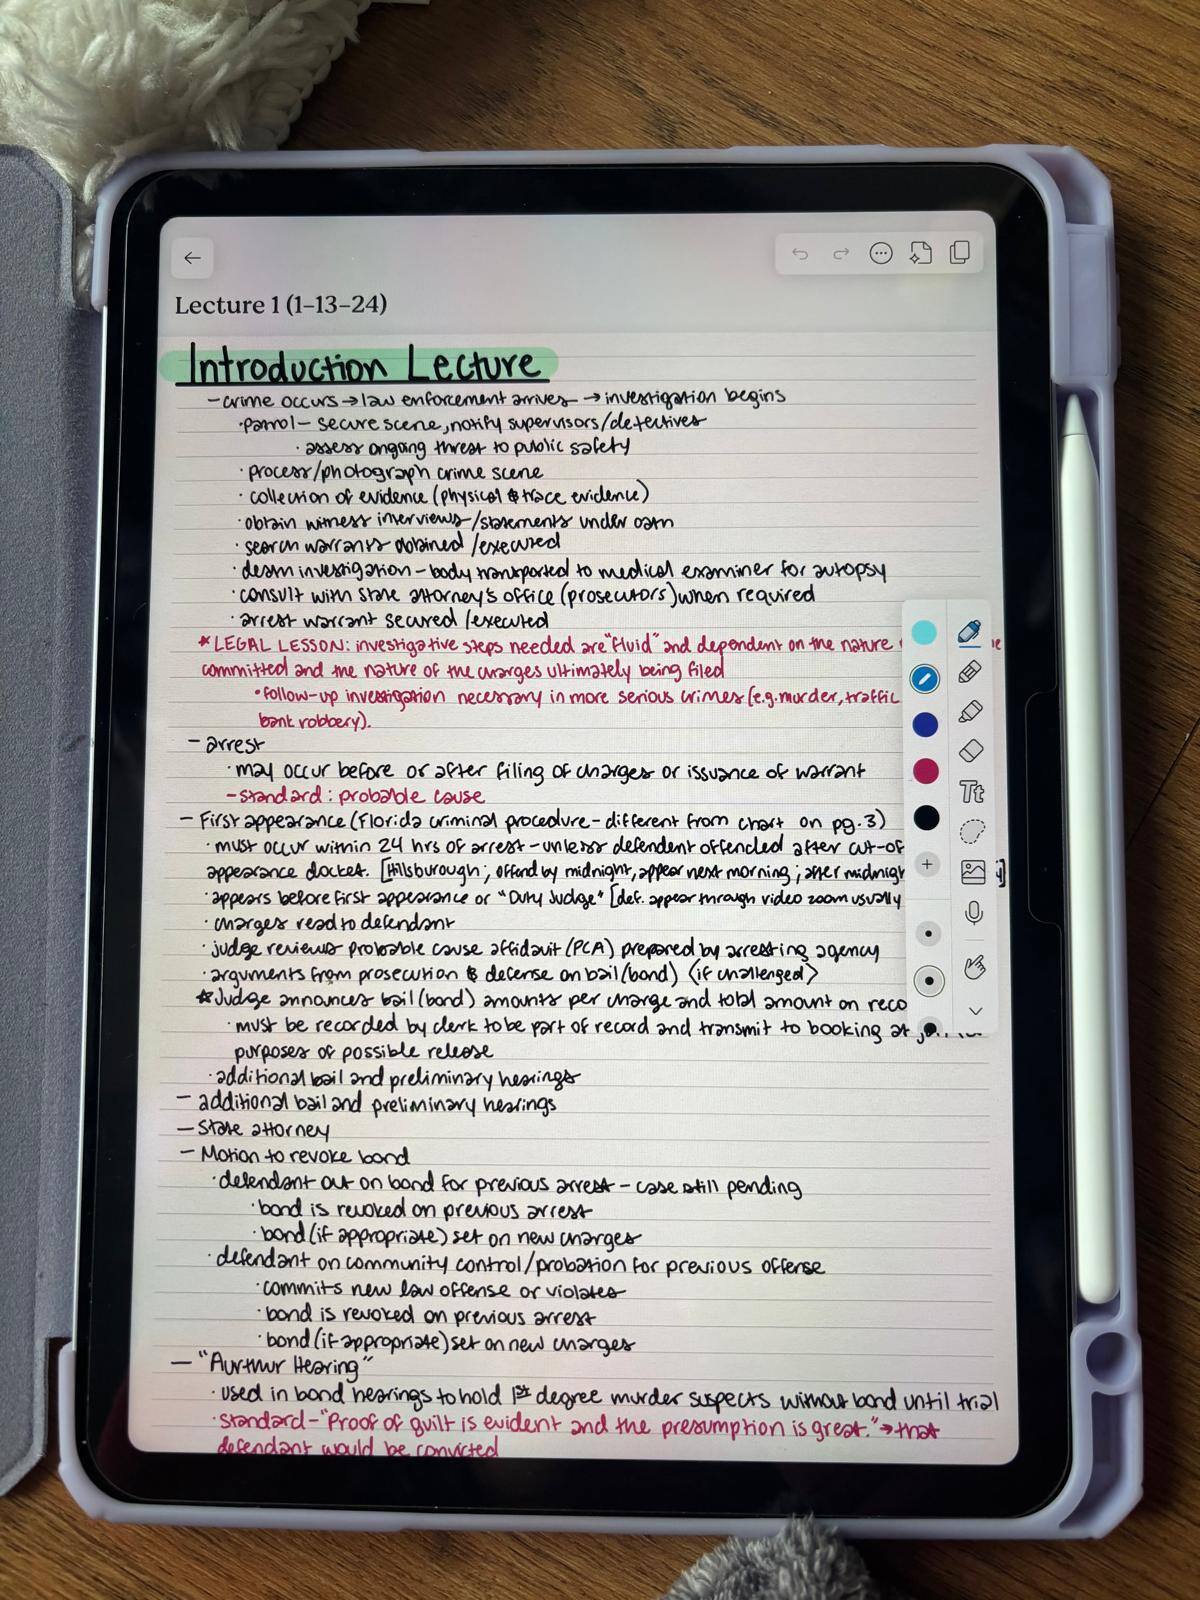 Lecture 1 (1-13-24)
Introduction Lecture
- crime occurs → law enforcement arrives → investigation begins
· patrol - secure scene, notify supervisors/detectives
· assess ongoing threat to public safety
· process/photograph crime scene
· collection of evidence (physical & trace evidence)
· obtain witness interviews/statements under oath
· search warrants obtained/executed
· death investigation - body transported to medical examiner for autopsy
· consult with state attorney's office (prosecutors) when required
· arrest warrant secured/executed
* LEGAL LESSON: investigative steps needed are "fluid" and dependent on the nature
committed and the nature of the charges ultimately being filed
· follow-up investigation necessary in more serious crimes (e.g. murder, traffic
bank robbery).
- arrest
· may occur before or after filing of charges or issuance of warrant
- standard: probable cause
- First appearance (Florida criminal procedure - different from chart on pg. 3)
· must occur within 24 hrs of arrest - unless defendent offended after cut-of
appearance docket. [Hillsborough; offend by midnight, appear next morning; after midnigh
· appears before first appearance or "Duty Judge" [def. appear through video zoom usually
· charges read to defendant
· judge reviews probable cause affidavit (PCA) prepared by arresting agency
· arguments from prosecution & defense on bail (bond) (if challenged)
* Judge announces bail (bond) amounts per charge and total amount on reco
· must be recorded by clerk to be part of record and transmit to booking at
purposes of possible release
· additional bail and preliminary hearings
- additional bail and preliminary hearings
- State attorney
- Motion to revoke bond
· defendant out on bond for previous arrest - case still pending
· bond is revoked on previous arrest
· bond (if appropriate) set on new charges
· defendant on community control/probation for previous offense
· commits new law offense or violates
· bond is revoked on previous arrest
· bond (if appropriate) set on new charges
- "Aurthur Hearing"
· used in bond hearings to hold 1st degree murder suspects without bond until trial
· standard - "Proof of guilt is evident and the presumption is great." → that
defendant would be convicted
Tt